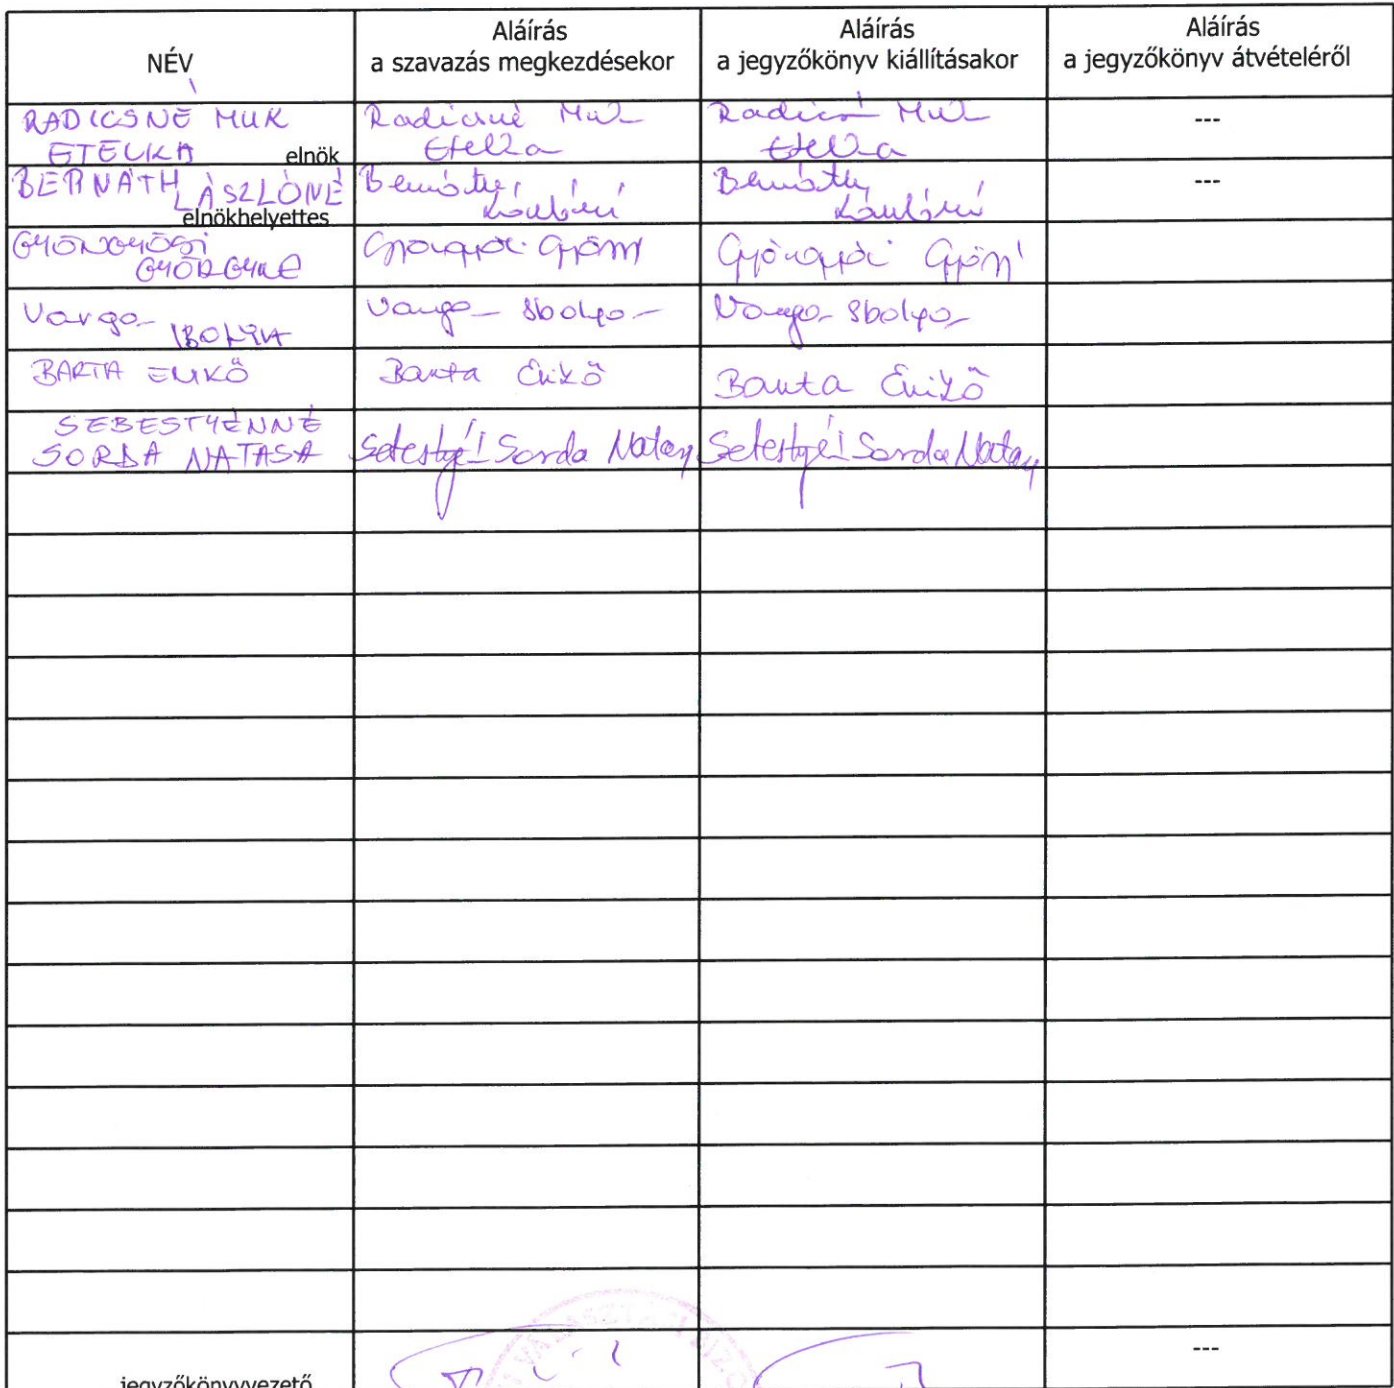 NÉV
Aláírás
a szavazás megkezdésekor
Aláírás
a jegyzőkönyv kiállításakor
Aláírás
a jegyzőkönyv átvételéről
RADICSNÉ MUK
ETELKA elnök
Radicsné Muk
Etelka
Radicsné Muk
Etelka
---
BERNÁTH LÁSZLÓNÉ
elnökhelyettes
Bernáth
Lászlóné
Bernáth
Lászlóné
---
GYÖNGYÖSI
GYÖRGYNÉ
Gyöngyösi
Gyöngyösi
Varga IBOLYA
Varga Ibolya
Varga Ibolya
BARTA ENIKŐ
Barta Enikő
Barta Enikő
SEBESTYÉNNÉ
SORDA NATASA
Sorda
Sorda
jegyzőkönyvvezető
---